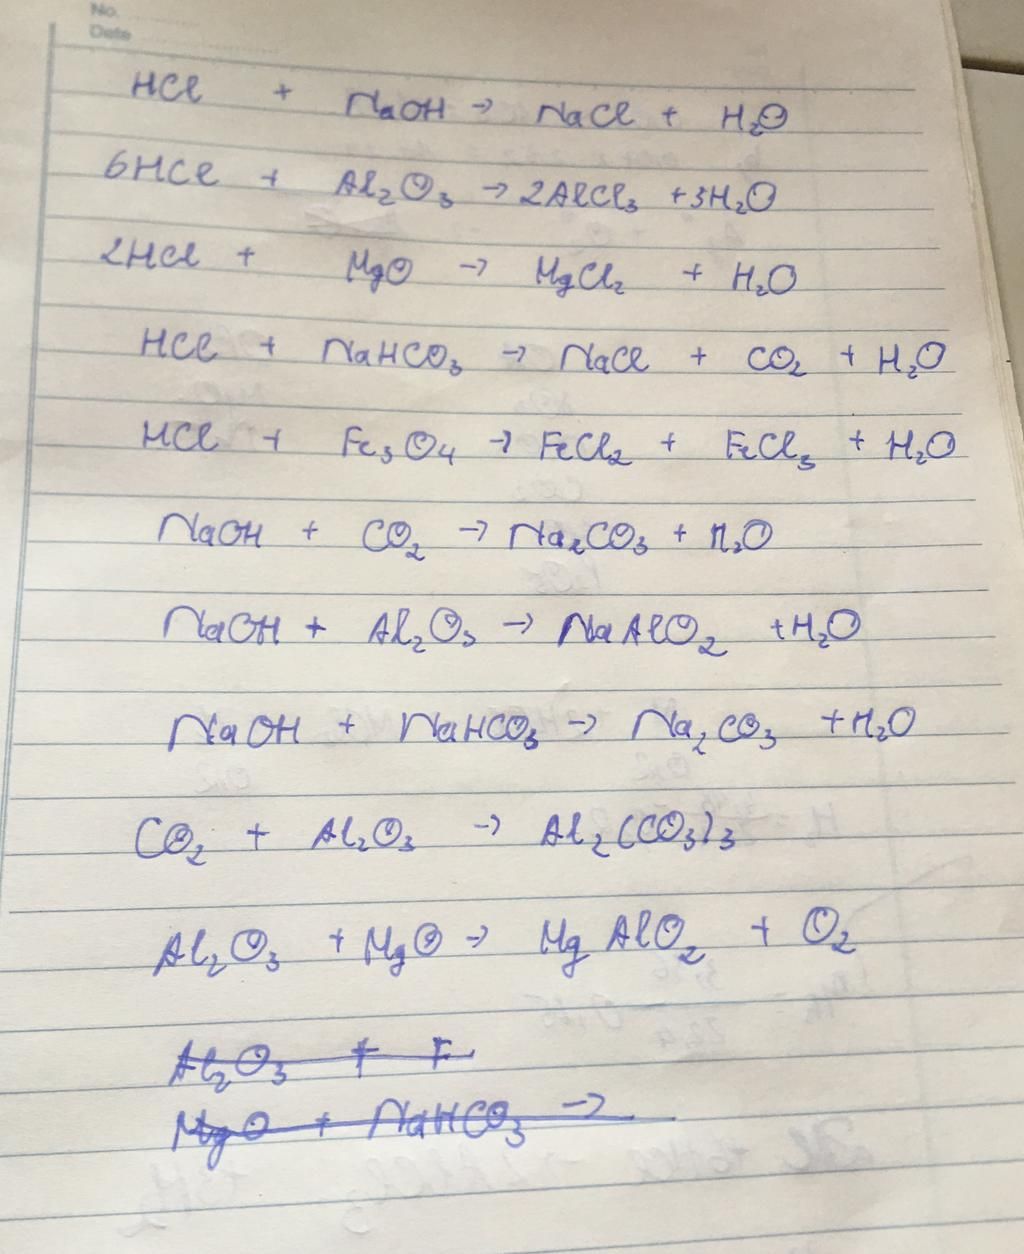 No.
Date
HCl + NaOH → NaCl + H₂O
6HCl + Al₂O₃ → 2AlCl₃ +3H₂O
2HCl + MgO → MgCl₂ + H₂O
HCl + NaHCO₃ → NaCl + CO₂ + H₂O
HCl + Fe₃O₄ → FeCl₂ + FeCl₃ + H₂O
NaOH + CO₂ → Na₂CO₃ + H₂O
NaOH + Al₂O₃ → NaAlO₂ +H₂O
NaOH + NaHCO₃ → Na₂CO₃ +H₂O
CO₂ + Al₂O₃ → Al₂(CO₃)₃
Al₂O₃ + MgO → MgAlO₂ + O₂
Al₂O₃ + F
MgO + NaHCO₃ →